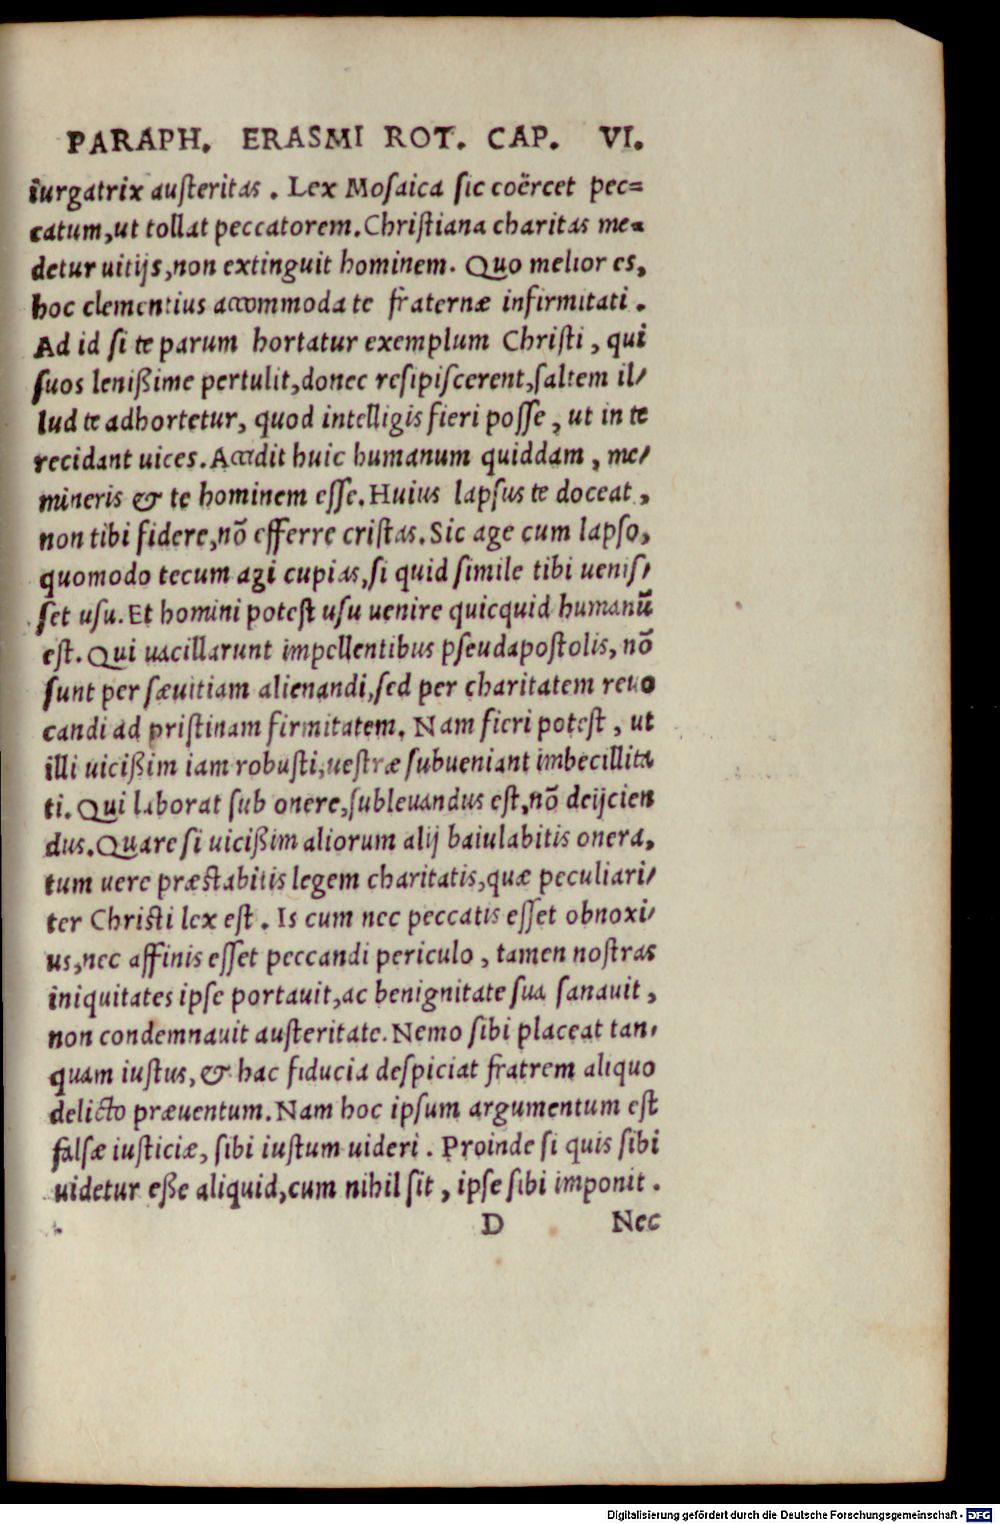 PARAPH. ERASMI ROT. CAP. VI.
iurgatrix auſteritas. Lex Moſaica ſic coërcet pec=
catum, ut tollat peccatorem. Chriſtiana charitas me=
detur uitijs, non extinguit hominem. Quo melior es,
hoc clementius accommoda te fraternæ infirmitati.
Ad id ſi te parum hortatur exemplum Chriſti, qui
ſuos lenißime pertulit, donec reſipiſcerent, ſaltem il/
lud te adhortetur, quod intelligis fieri poſſe, ut in te
recidant uices. Accedit huic humanum quiddam, me/
mineris & te hominem eſſe. Huius lapſus te doceat,
non tibi fidere, nõ efferre criſtas. Sic age cum lapſo,
quomodo tecum agi cupias, ſi quid ſimile tibi ueniſ/
ſet uſu. Et homini poteſt uſu uenire quicquid humanũ
eſt. Qui uacillarunt impellentibus pſeudapoſtolis, nõ
ſunt per ſæuitiam alienandi, ſed per charitatem reuo
candi ad priſtinam firmitatem. Nam fieri poteſt, ut
illi uicißim iam robuſti, ueſtræ ſubueniant imbecillita
ti. Qui laborat ſub onere, ſubleuandus eſt, nõ deijcien
dus. Quare ſi uicißim aliorum alij baiulabitis onera,
tum uere præſtabitis legem charitatis, quæ peculiari/
ter Chriſti lex eſt. Is cum nec peccatis eſſet obnoxi/
us, nec affinis eſſet peccandi periculo, tamen noſtras
iniquitates ipſe portauit, ac benignitate ſua ſanauit,
non condemnauit auſteritate. Nemo ſibi placeat tan/
quam iuſtus, & hac fiducia deſpiciat fratrem aliquo
delicto præuentum. Nam hoc ipſum argumentum eſt
falſæ iuſticiæ, ſibi iuſtum uideri. Proinde ſi quis ſibi
uidetur eße aliquid, cum nihil ſit, ipſe ſibi imponit.
D Nec
Digitalisierung gefördert durch die Deutsche Forschungsgemeinschaft - DFG